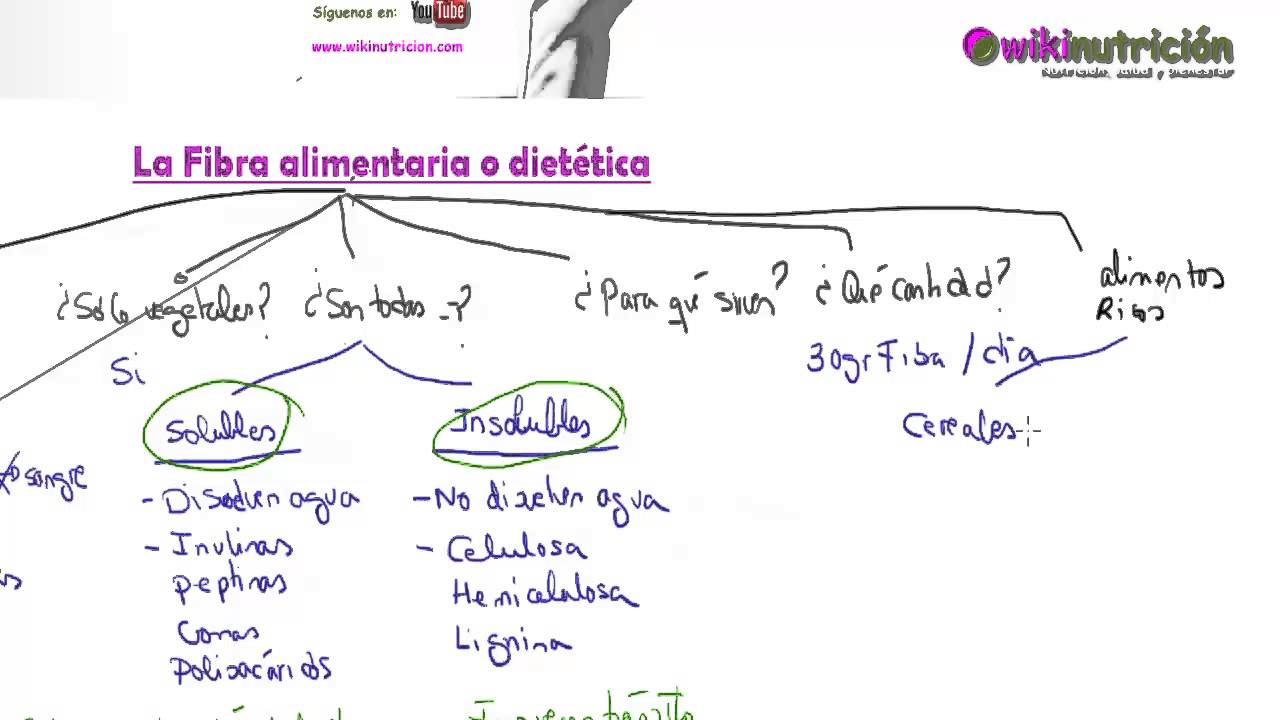 Síguenos en: YouTube
www.wikinutricion.com
wikinutrición
Nutrición, salud y bienestar
La Fibra alimentaria o dietética
¿Sólo vegetales? ¿Son todas =? ¿Para qué sirven? ¿Qué cantidad? alimentos
Ricos
Si
30gr Fibra / día
Solubles
Insolubles
Cereales
sangre
- Disuelven agua
- No disuelven agua
- Inulinas
- Celulosa
Peptinas
Hemicelulosa
Gomas
Lignina
Polisacáridos